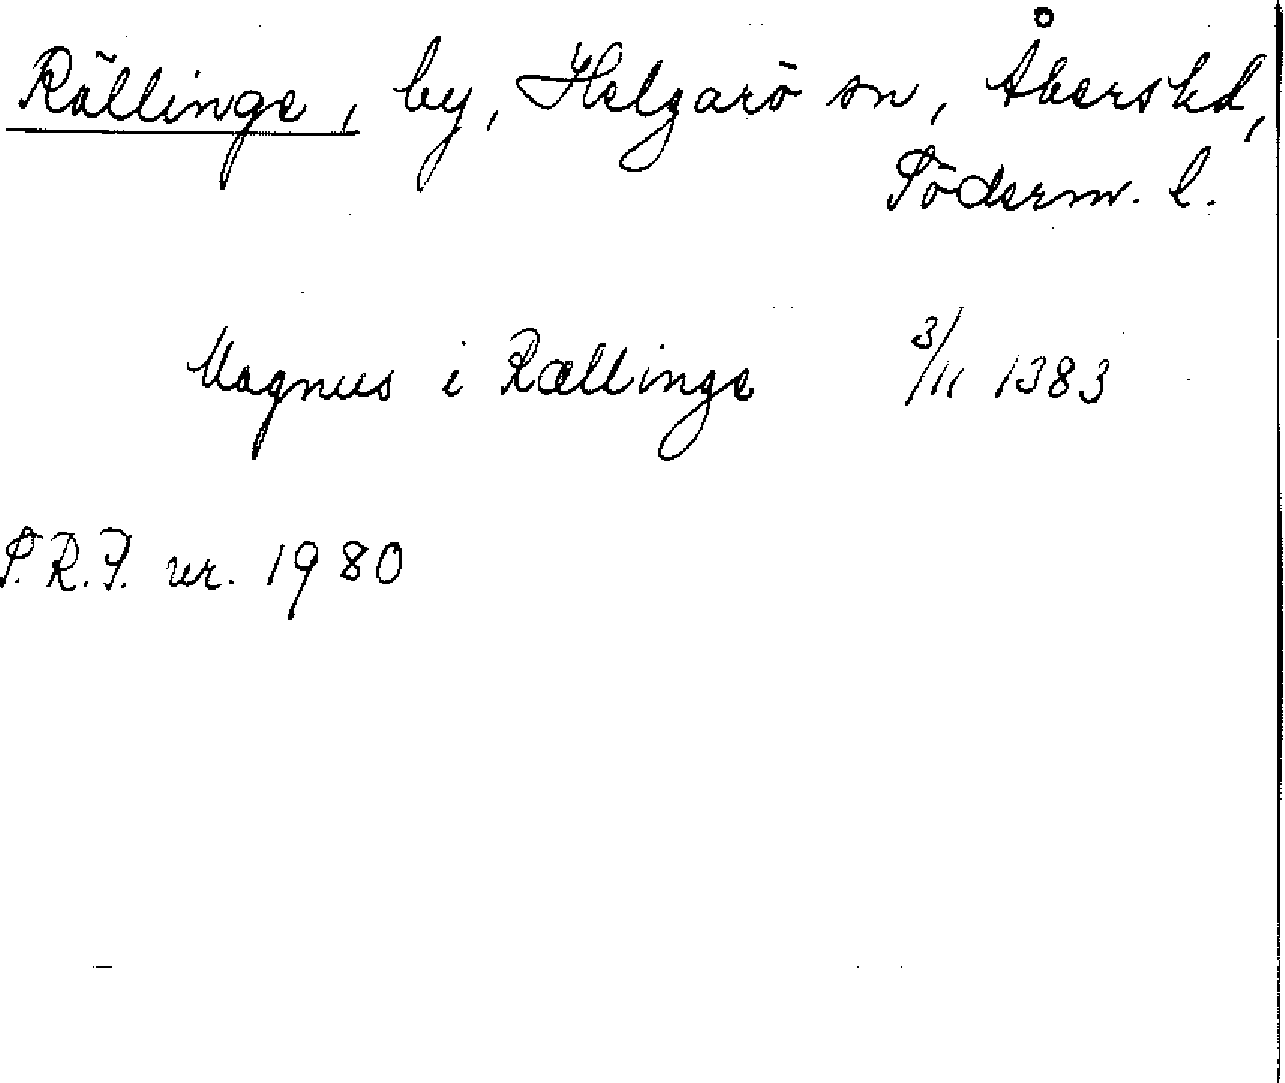 Rällinge, by, Helgarö sn, Åkers hd,
Söderm. l.
Magnus i Rællinge 3/11 1383
S.R.P. nr. 1980